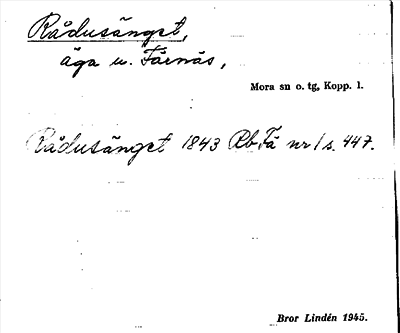 Rådusänget,
äga u. Färnäs,
Mora sn o. tg, Kopp. l.
Rådusänget 1843 Rb Fä nr 1 s. 447.
Bror Lindén 1945.